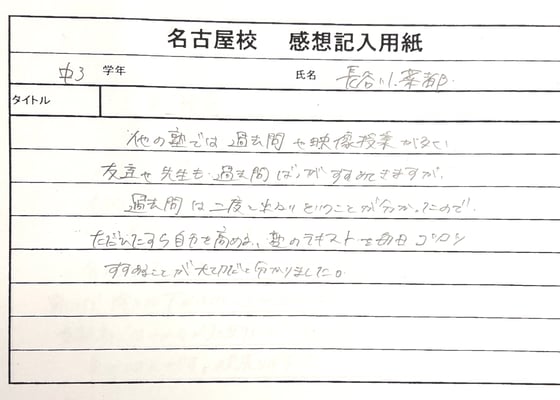 名古屋校 感想記入用紙
中3 学年 氏名 長谷川 菜都
タイトル
他の塾では 過去問 や映像授業が多い
友立や先生も過去問ばっかすすめてきますが、
過去問は二度と出ないということが分かったので、
ただひたすら自分を高める、塾のテキストを毎日コツコツ
すすめることが大切だと分かりました。